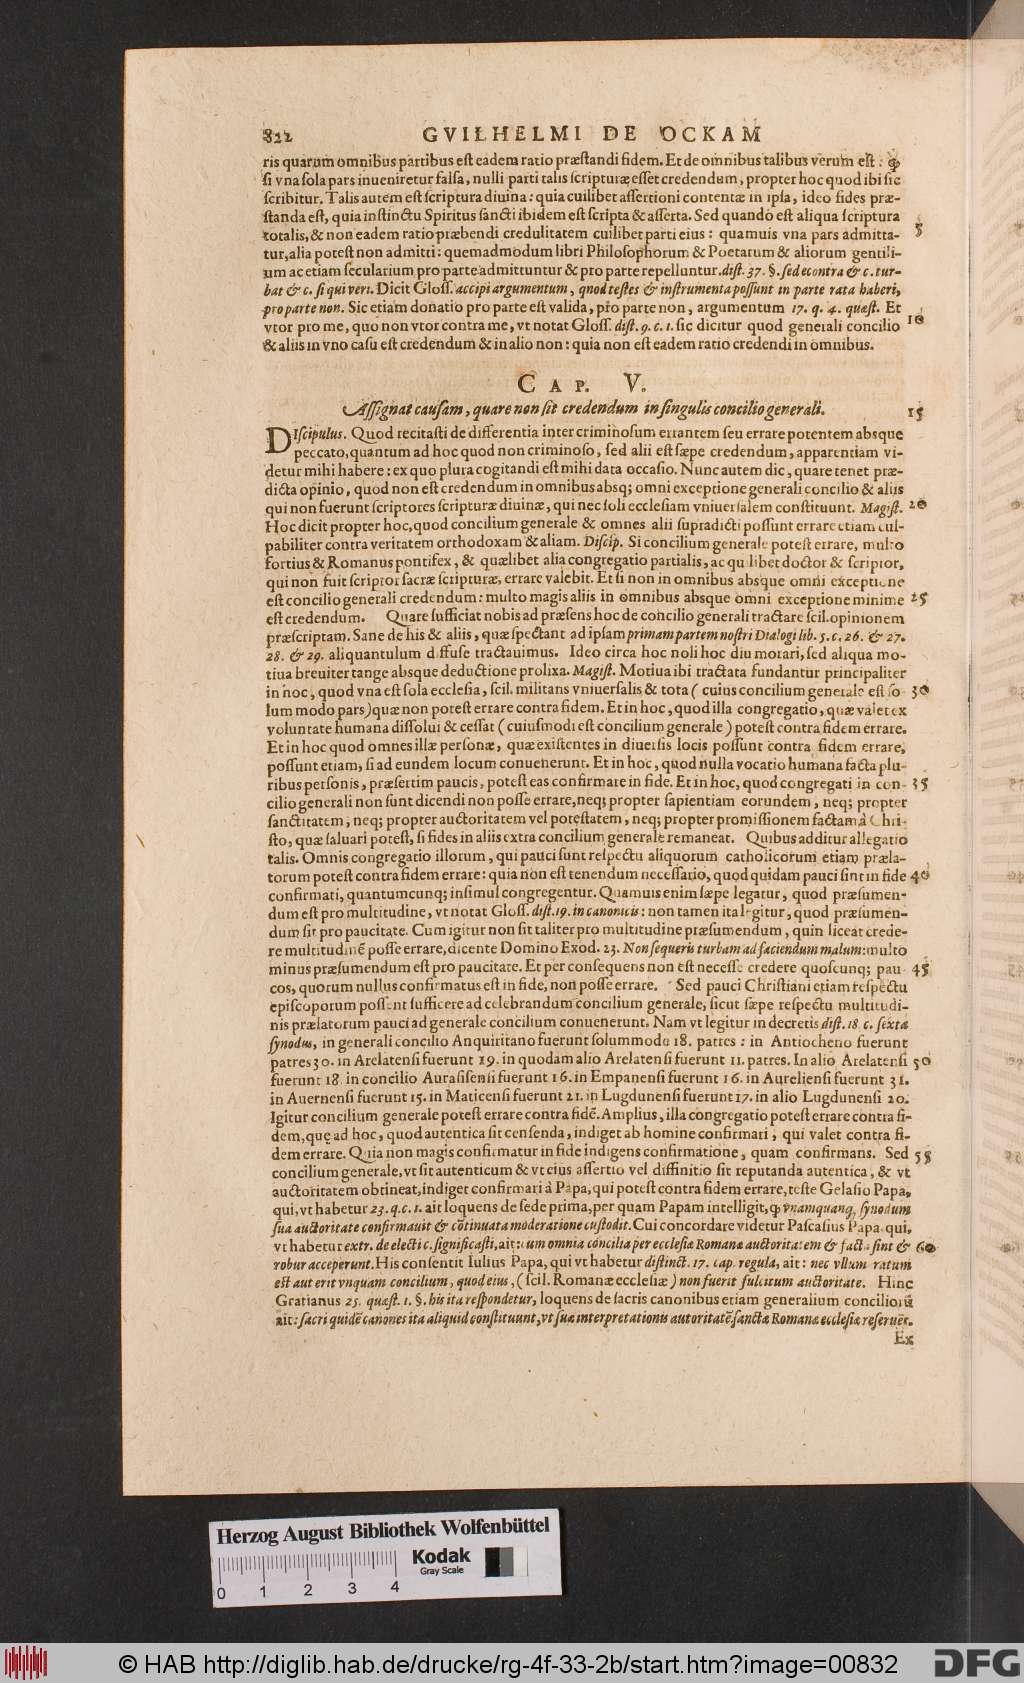 822 GVILHELMI DE OCKAM
ris quarum omnibus partibus est eadem ratio præstandi fidem. Et de omnibus talibus verum est: ꝙ
si vna sola pars inueniretur falsa, nulli parti talis scripturæ esset credendum, propter hoc quod ibi sic
scribitur. Talis autem est scriptura diuina: quia cuilibet assertioni contentæ in ipsa, ideo fides præ-
standa est, quia instinctu Spiritus sancti ibidem est scripta & asserta. Sed quando est aliqua scriptura
totalis, & non eadem ratio præbendi credulitatem cuilibet parti eius: quamuis vna pars admitta- 5
tur, alia potest non admitti: quemadmodum libri Philosophorum & Poetarum & aliorum gentili-
um ac etiam secularium pro parte admittuntur & pro parte repelluntur. dist. 37. §. sed econtra & c. tur-
bat & c. si qui veri. Dicit Gloss. accipi argumentum, quod testes & instrumenta possunt in parte rata haberi,
pro parte non. Sic etiam donatio pro parte est valida, pro parte non, argumentum 17. q. 4. quæst. Et
vtor pro me, quo non vtor contra me, vt notat Gloss. dist. 9. c. 1. sic dicitur quod generali concilio 10
& aliis in vno casu est credendum & in alio non: quia non est eadem ratio credendi in omnibus.
CAP. V.
Assignat causam, quare non sit credendum in singulis concilio generali. 15
DIscipulus. Quod recitasti de differentia inter criminosum errantem seu errare potentem absque
peccato, quantum ad hoc quod non criminoso, sed alii est sæpe credendum, apparentiam vi-
detur mihi habere: ex quo plura cogitandi est mihi data occasio. Nunc autem dic, quare tenet præ-
dicta opinio, quod non est credendum in omnibus absq; omni exceptione generali concilio & aliis
qui non fuerunt scriptores scripturæ diuinæ, qui nec soli ecclesiam vniuersalem constituunt. Magist. 20
Hoc dicit propter hoc, quod concilium generale & omnes alii supradicti possunt errare etiam cul-
pabiliter contra veritatem orthodoxam & aliam. Discip. Si concilium generale potest errare, multo
fortius & Romanus pontifex, & quælibet alia congregatio partialis, ac qu libet doctor & scriptor,
qui non fuit scriptor sacræ scripturæ, errare valebit. Et si non in omnibus absque omni exceptione
est concilio generali credendum: multo magis aliis in omnibus absque omni exceptione minime 25
est credendum. Quare sufficiat nobis ad præsens hoc de concilio generali tractare scil. opinionem
præscriptam. Sane de his & aliis, quæ spectant ad ipsam primam partem nostri Dialogi lib. 5. c. 26. & 27.
28. & 29. aliquantulum diffuse tractauimus. Ideo circa hoc noli hoc diu morari, sed aliqua mo-
tiua breuiter tange absque deductione prolixa. Magist. Motiua ibi tractata fundantur principaliter
in hoc, quod vna est sola ecclesia, scil. militans vniuersalis & tota (cuius concilium generale est so- 30
lum modo pars) quæ non potest errare contra fidem. Et in hoc, quod illa congregatio, quæ valet ex
voluntate humana dissolui & cessat (cuiusmodi est concilium generale) potest contra fidem errare.
Et in hoc quod omnes illæ personæ, quæ existentes in diuersis locis possunt contra fidem errare,
possunt etiam, si ad eundem locum conuenerunt. Et in hoc, quod nulla vocatio humana facta plu-
ribus personis, præsertim paucis, potest eas confirmare in fide. Et in hoc, quod congregati in con- 35
cilio generali non sunt dicendi non posse errare, neq; propter sapientiam eorundem, neq; propter
sanctitatem, neq; propter auctoritatem vel potestatem, neq; propter promissionem factam à Chri-
sto, quæ saluari potest, si fides in aliis extra concilium generale remaneat. Quibus additur allegatio
talis. Omnis congregatio illorum, qui pauci sunt respectu aliquorum catholicorum etiam præla-
torum potest contra fidem errare: quia non est tenendum necessario, quod quidam pauci sint in fide 40
confirmati, quantumcunq; insimul congregentur. Quamuis enim sæpe legatur, quod præsumen-
dum est pro multitudine, vt notat Gloss. dist. 19. in canonicis: non tamen ita legitur, quod præsumen-
dum sit pro paucitate. Cum igitur non sit taliter pro multitudine præsumendum, quin liceat crede-
re multitudinẽ posse errare, dicente Domino Exod. 23. Non sequeris turbam ad faciendum malum: multo
minus præsumendum est pro paucitate. Et per consequens non est necesse credere quoscunq; pau- 45
cos, quorum nullus confirmatus est in fide, non posse errare. Sed pauci Christiani etiam respectu
episcoporum possent sufficere ad celebrandum concilium generale, sicut sæpe respectu multitudi-
nis prælatorum pauci ad generale concilium conuenerunt. Nam vt legitur in decretis dist. 18 c. sexta
synodus, in generali concilio Anquiritano fuerunt solummodo 18. patres: in Antiocheno fuerunt
patres 30. in Arelatensi fuerunt 19. in quodam alio Arelatensi fuerunt 11. patres. In alio Arelatensi 50
fuerunt 18. in concilio Aurasisensi fuerunt 16. in Empanensi fuerunt 16. in Aureliensi fuerunt 31.
in Auernensi fuerunt 15. in Maticensi fuerunt 21. in Lugdunensi fuerunt 17. in alio Lugdunensi 20.
Igitur concilium generale potest errare contra fidẽ. Amplius, illa congregatio potest errare contra fi-
dem, quę ad hoc, quod autentica sit censenda, indiget ab homine confirmari, qui valet contra fi-
dem errare. Quia non magis confirmatur in fide indigens confirmatione, quam confirmans. Sed 55
concilium generale, vt sit autenticum & vt eius assertio vel diffinitio sit reputanda autentica, & vt
auctoritatem obtineat, indiget confirmari à Papa, qui potest contra fidem errare, teste Gelasio Papa,
qui, vt habetur 23. q. c. 1. ait loquens de sede prima, per quam Papam intelligit, ꝙ vnamquanq; synodum
sua auctoritate confirmauit & cõtinuata moderatione custodit. Cui concordare videtur Pascasius Papa qui,
vt habetur extr. de electi c. significasti, ait: cum omnia concilia per ecclesiæ Romanæ auctoritatem & facta sint & 60
robur acceperunt. His consentit Iulius Papa, qui vt habetur distinct. 17. cap. regula, ait: nec vllum ratum
est aut erit vnquam concilium, quod eius, (scil. Romanæ ecclesiæ) non fuerit fulcitum auctoritate. Hinc
Gratianus 25. quæst. 1. §. his ita respondetur, loquens de sacris canonibus etiam generalium conciliorũ
ait: sacri quidẽ canones ita aliquid constituunt, vt suæ interpretationis autoritatẽ sanctæ Romanæ ecclesiæ reseruẽt.
Ex
Herzog August Bibliothek Wolfenbüttel
Kodak
Gray Scale
0 1 2 3 4
© HAB http://diglib.hab.de/drucke/rg-4f-33-2b/start.htm?image=00832
DFG